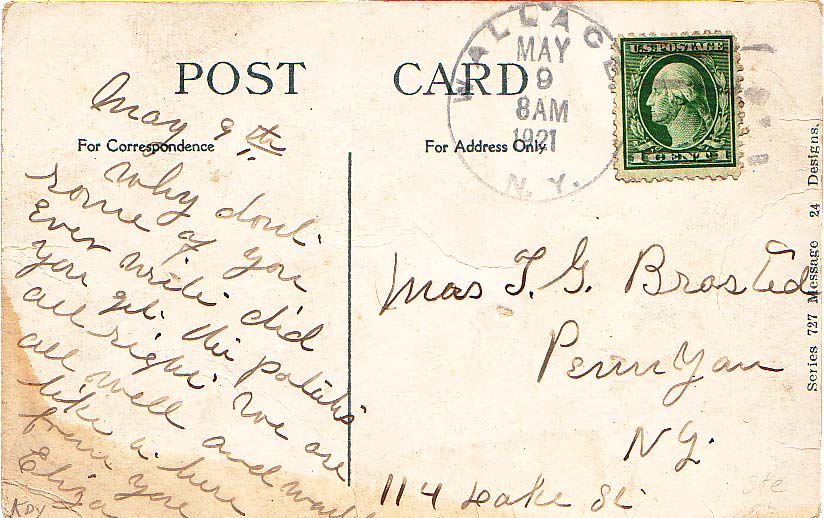 POST CARD
For Correspondence
For Address Only
WALLACE
MAY
9
8AM
1921
N. Y.
U.S. POSTAGE
1 CENT 1
May 9th
Why dont
some of you
Ever write did
you get the potatos
all right. We are
all well and would
like a
from you
Eliza
Mrs T. G. Brasted
Penn Yan
N.Y.
114 Lake St
Series 727 Message 24 Designs.
ste